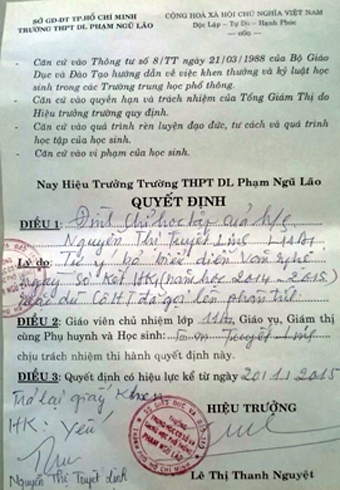 SỞ GD-ĐT TP.HỒ CHÍ MINH
TRƯỜNG THPT DL PHẠM NGŨ LÃO
CỘNG HOÀ XÃ HỘI CHỦ NGHĨA VIỆT NAM
Độc Lập - Tự Do - Hạnh Phúc
- Căn cứ vào Thông tư số 8/TT ngày 21/03/1988 của Bộ Giáo
Dục và Đào Tạo hướng dẫn về việc khen thưởng và kỷ luật học
sinh trong các Trường trung học phổ thông.
- Căn cứ vào quyền hạn và trách nhiệm của Tổng Giám Thị do
Hiệu trưởng trường quy định.
- Căn cứ vào quá trình rèn luyện đạo đức, tư cách và quá trình
học tập của học sinh.
- Căn cứ vào vi phạm của học sinh.
Nay Hiệu Trưởng Trường THPT DL Phạm Ngũ Lão
QUYẾT ĐỊNH
ĐIỀU 1: Đình chỉ học tập của h/s
Nguyễn Thị Tuyết Linh L11A1
Lý do: Tự ý bỏ biểu diễn văn nghệ
ngày Sơ Kết HK1 (năm học 2014 - 2015)
mặc dù Cô HT đã gọi lên phân tích
ĐIỀU 2: Giáo viên chủ nhiệm lớp 11A1, Giáo vụ, Giám thị
cùng Phụ huynh và Học sinh: Em Tuyết Linh
chịu trách nhiệm thi hành quyết định này.
ĐIỀU 3: Quyết định có hiệu lực kể từ ngày 20/1/2015
Trả lại giấy Khen
HK: Yếu
HIỆU TRƯỞNG
Nguyễn Thị Tuyết Linh
Lê Thị Thanh Nguyệt